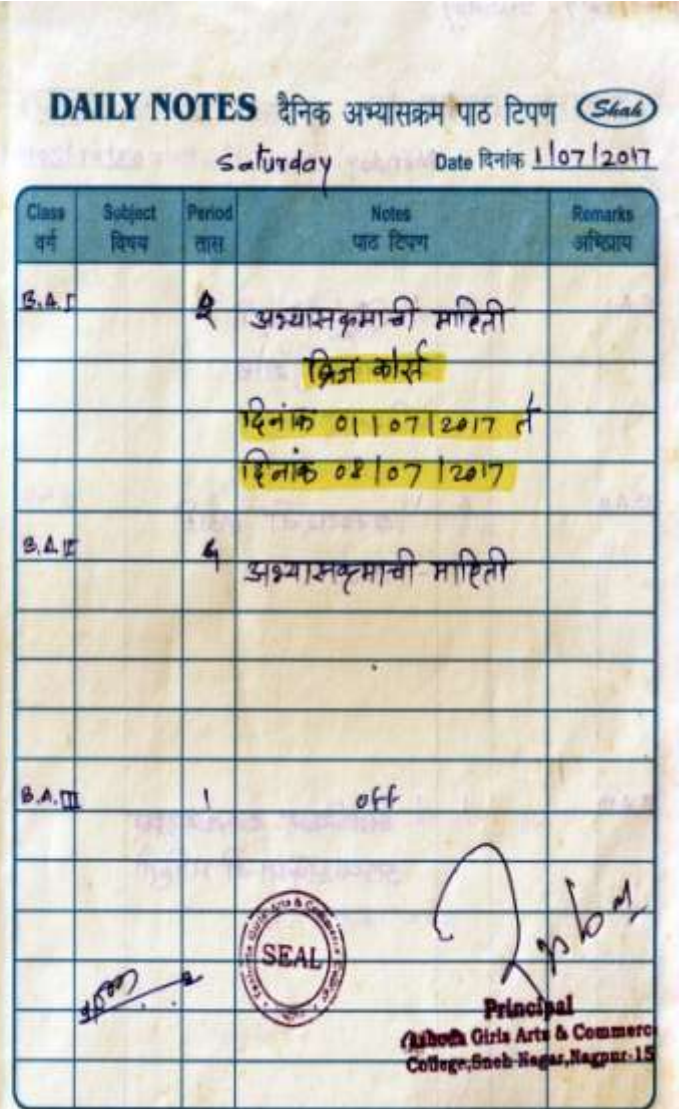 DAILY NOTES दैनिक अभ्यासक्रम पाठ टिपण Shah
Saturday Date दिनांक 1/07/2017
Class Subject Period Notes Remarks
वर्ग विषय तास पाठ टिपण अभिप्राय
B.A.I अभ्यासक्रमाची माहिती
ब्रिज कोर्स
दिनांक 01/07/2017 ते
दिनांक 08/07/2017
B.A.II अभ्यासक्रमाची माहिती
B.A.III 1 off
SEAL
Principal
Girls Arts & Commerce
College, Sneh Nagar, Nagpur-15